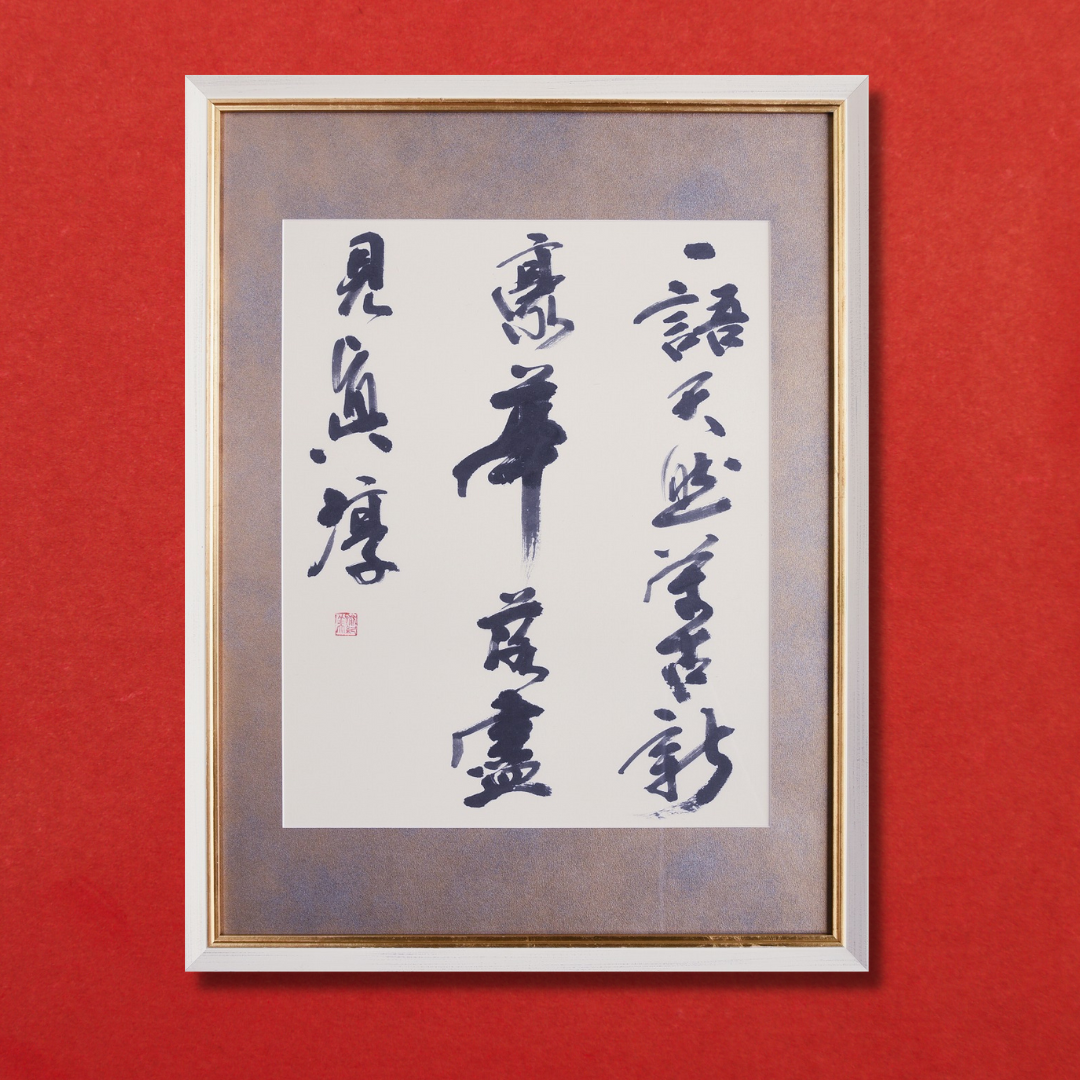 一語天然萬古新
豪華落盡
見眞淳